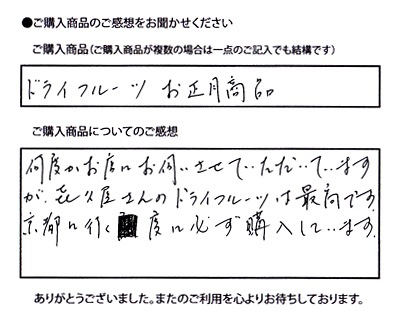 ●ご購入商品のご感想をお聞かせください
ご購入商品(ご購入商品が複数の場合は一点のご記入でも結構です)
ドライフルーツ お正月商品
ご購入商品についてのご感想
何度かお店にお伺いさせていただいています
が、㐂久屋さんのドライフルーツは最高です。
京都に行く度に必ず購入しています。
ありがとうございました。またのご利用を心よりお待ちしております。